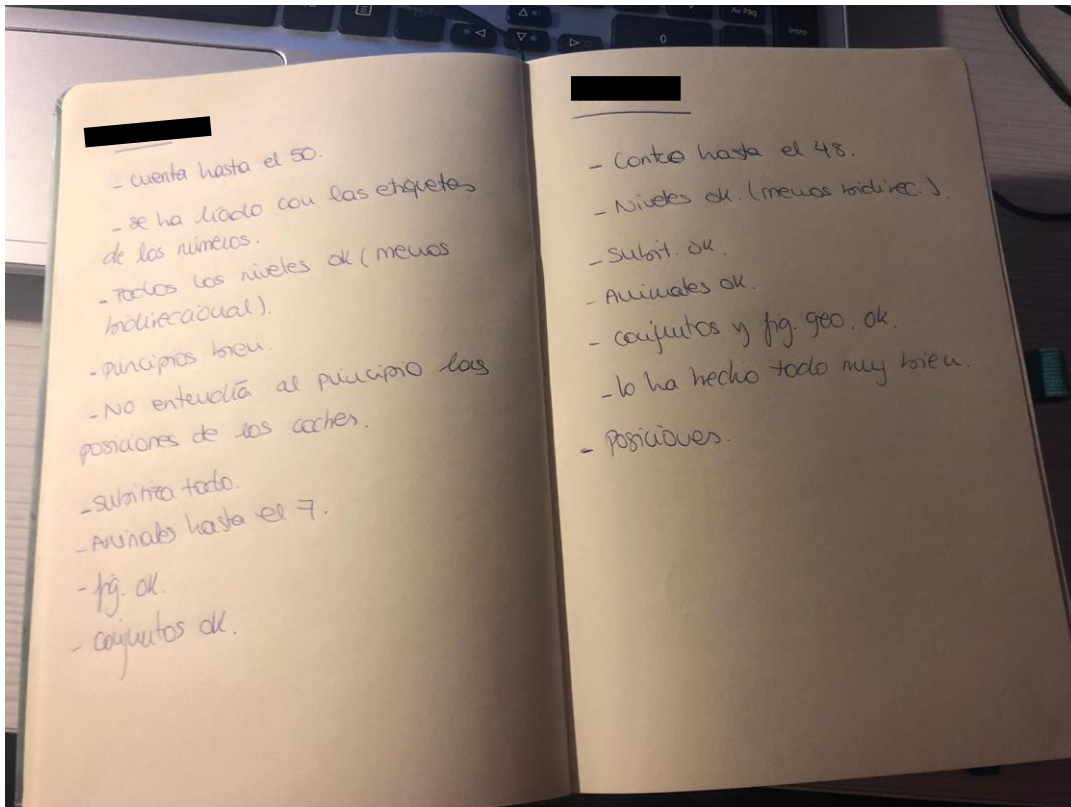 - cuenta hasta el 50.
- se ha liado con las etiquetas
de los números.
- Todos los niveles ok (menos
bidireccional).
- principios bien.
- No entendía al principio las
posiciones de los coches.
- subitiza todo.
- Animales hasta el 7.
- fig. ok.
- conjuntos ok.
- Conteo hasta el 48.
- Niveles ok. (menos bidirec.).
- Subit. ok.
- Animales ok.
- conjuntos y fig. geo. ok.
- lo ha hecho todo muy bien.
- posiciones.
Av Pág
Intro
0